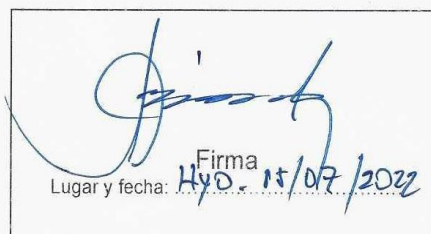 Firma
Lugar y fecha: Hyo. 15/07/2022